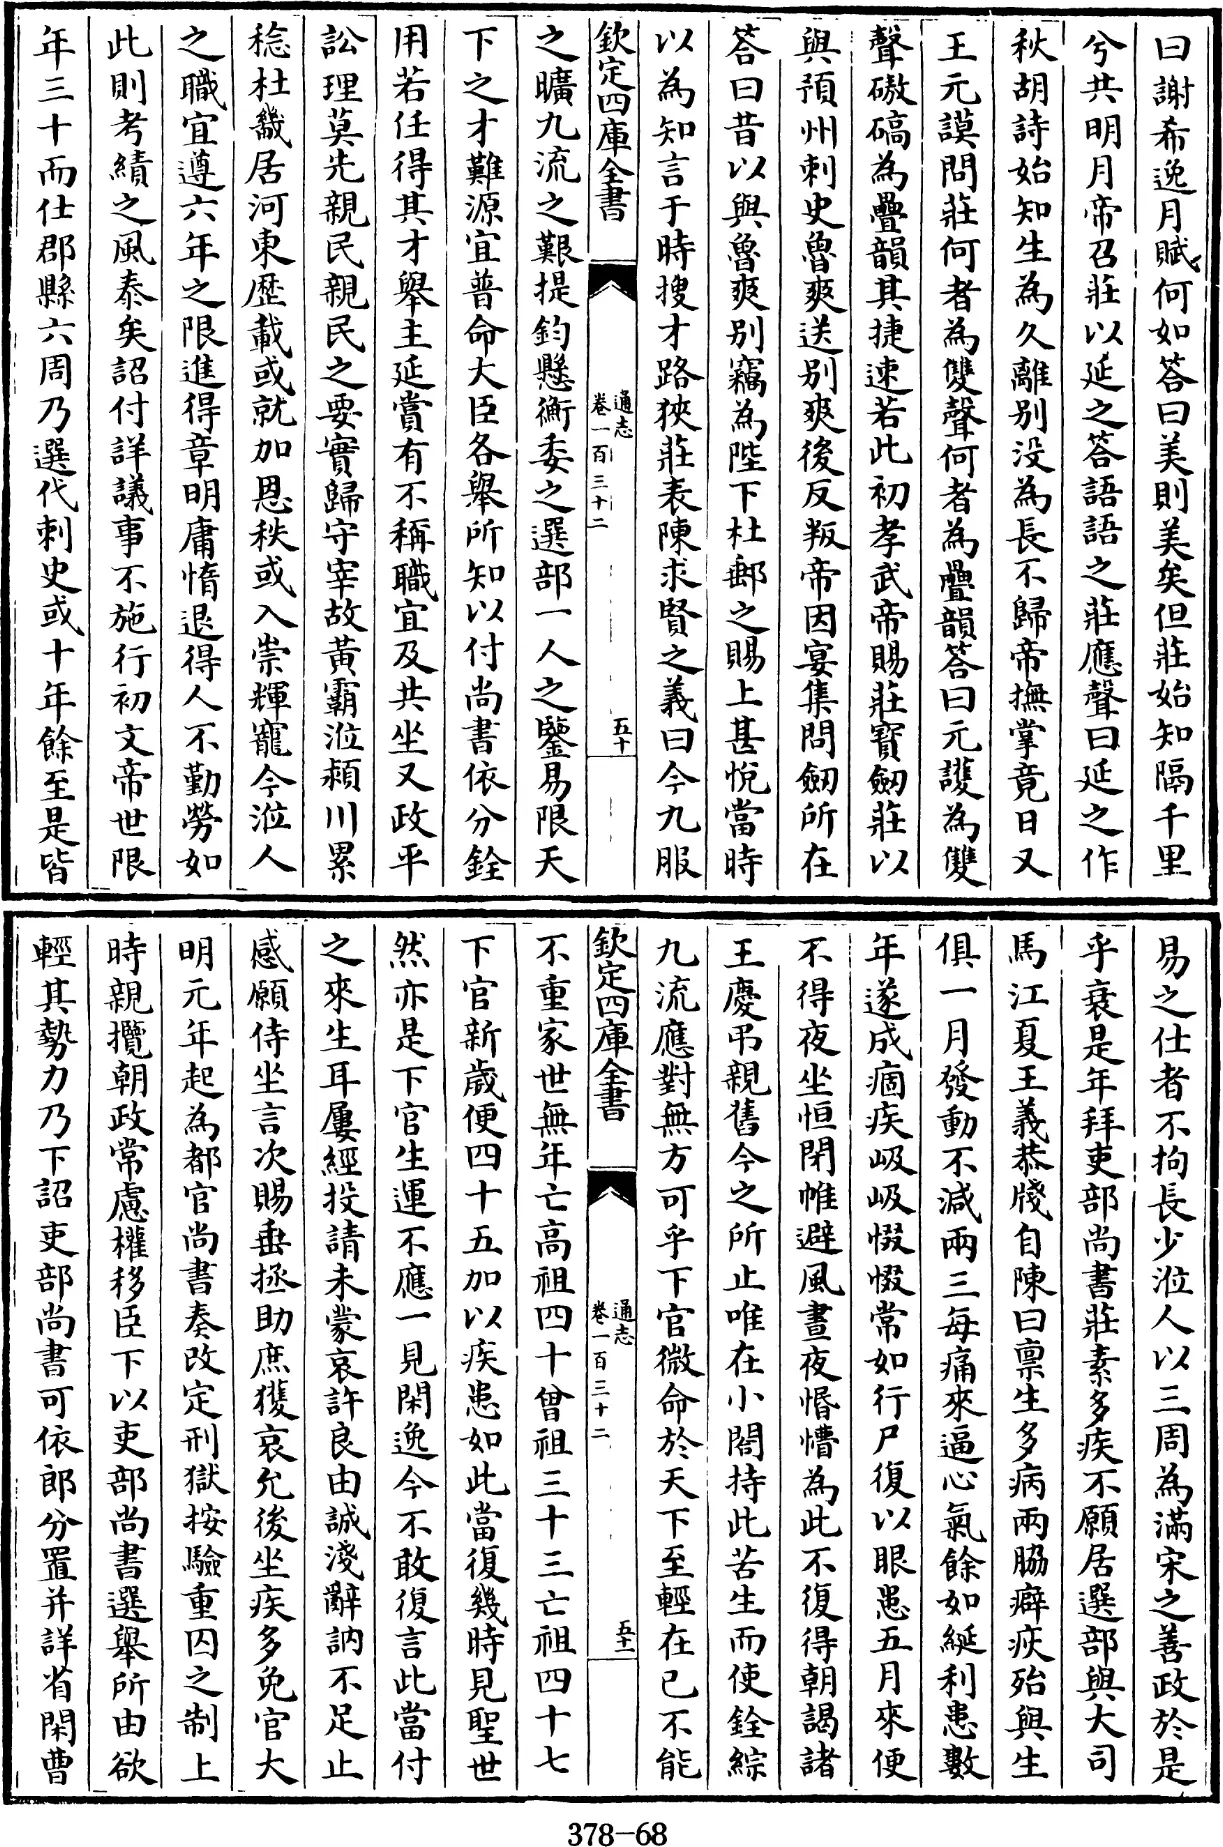 曰謝希逸月賦何如答曰美則美矣但莊始知隔千里
兮共明月帝召莊以延之答語語之莊應聲曰延之作
秋胡詩始知生為久離别没為長不歸帝撫掌竟日又
王元謨問莊何者為雙聲何者為疊韻答曰元謨為雙
聲磝碻為疊韻其捷速若此初孝武帝賜莊寳劒莊以
與預州刺史魯爽送别爽後反叛帝因宴集問劒所在
答曰昔以與魯爽别竊為陛下杜郵之賜上甚悅當時
以為知言于時搜才路狹莊表陳求賢之義曰今九服
欽定四庫全書
通志
卷一百三十二
五十
之曠九流之艱提鈞懸衡委之選部一人之鑒易限天
下之才難源宜普命大臣各舉所知以付尚書依分銓
用若任得其才舉主延賞有不稱職宜及共坐又政平
訟理莫先親民親民之要實歸守宰故黃霸涖潁川累
稔杜畿居河東歴載或就加恩秩或入崇輝寵今涖人
之職宜遵六年之限進得章明庸惰退得人不勤勞如
此則考績之風泰矣詔付詳議事不施行初文帝世限
年三十而仕郡縣六周乃選代刺史或十年餘至是皆
易之仕者不拘長少涖人以三周為滿宋之善政於是
乎衰是年拜吏部尚書莊素多疾不願居選部與大司
馬江夏王義恭牋自陳曰禀生多病兩脇癖疢殆與生
俱一月發動不減兩三每痛來逼心氣餘如綖利患數
年遂成痼疾岋岋惙惙常如行尸復以眼患五月來便
不得夜坐恒閉帷避風晝夜惛懵為此不復得朝謁諸
王慶弔親舊今之所止唯在小閣持此苦生而使銓綜
九流應對無方可乎下官微命於天下至輕在己不能
欽定四庫全書
通志
卷一百三十二
五十一
不重家世無年亡高祖四十曾祖三十三亡祖四十七
下官新歲便四十五加以疾患如此當復幾時見聖世
然亦是下官生運不應一見閑逸今不敢復言此當付
之來生耳屢經投請未蒙哀許良由誠淺辭訥不足止
感願侍坐言次賜垂拯助庶獲哀允後坐疾多免官大
明元年起為都官尚書奏改定刑獄按驗重囚之制上
時親攬朝政常慮權移臣下以吏部尚書選舉所由欲
輕其勢力乃下詔吏部尚書可依郎分置并詳省閑曹
378-68